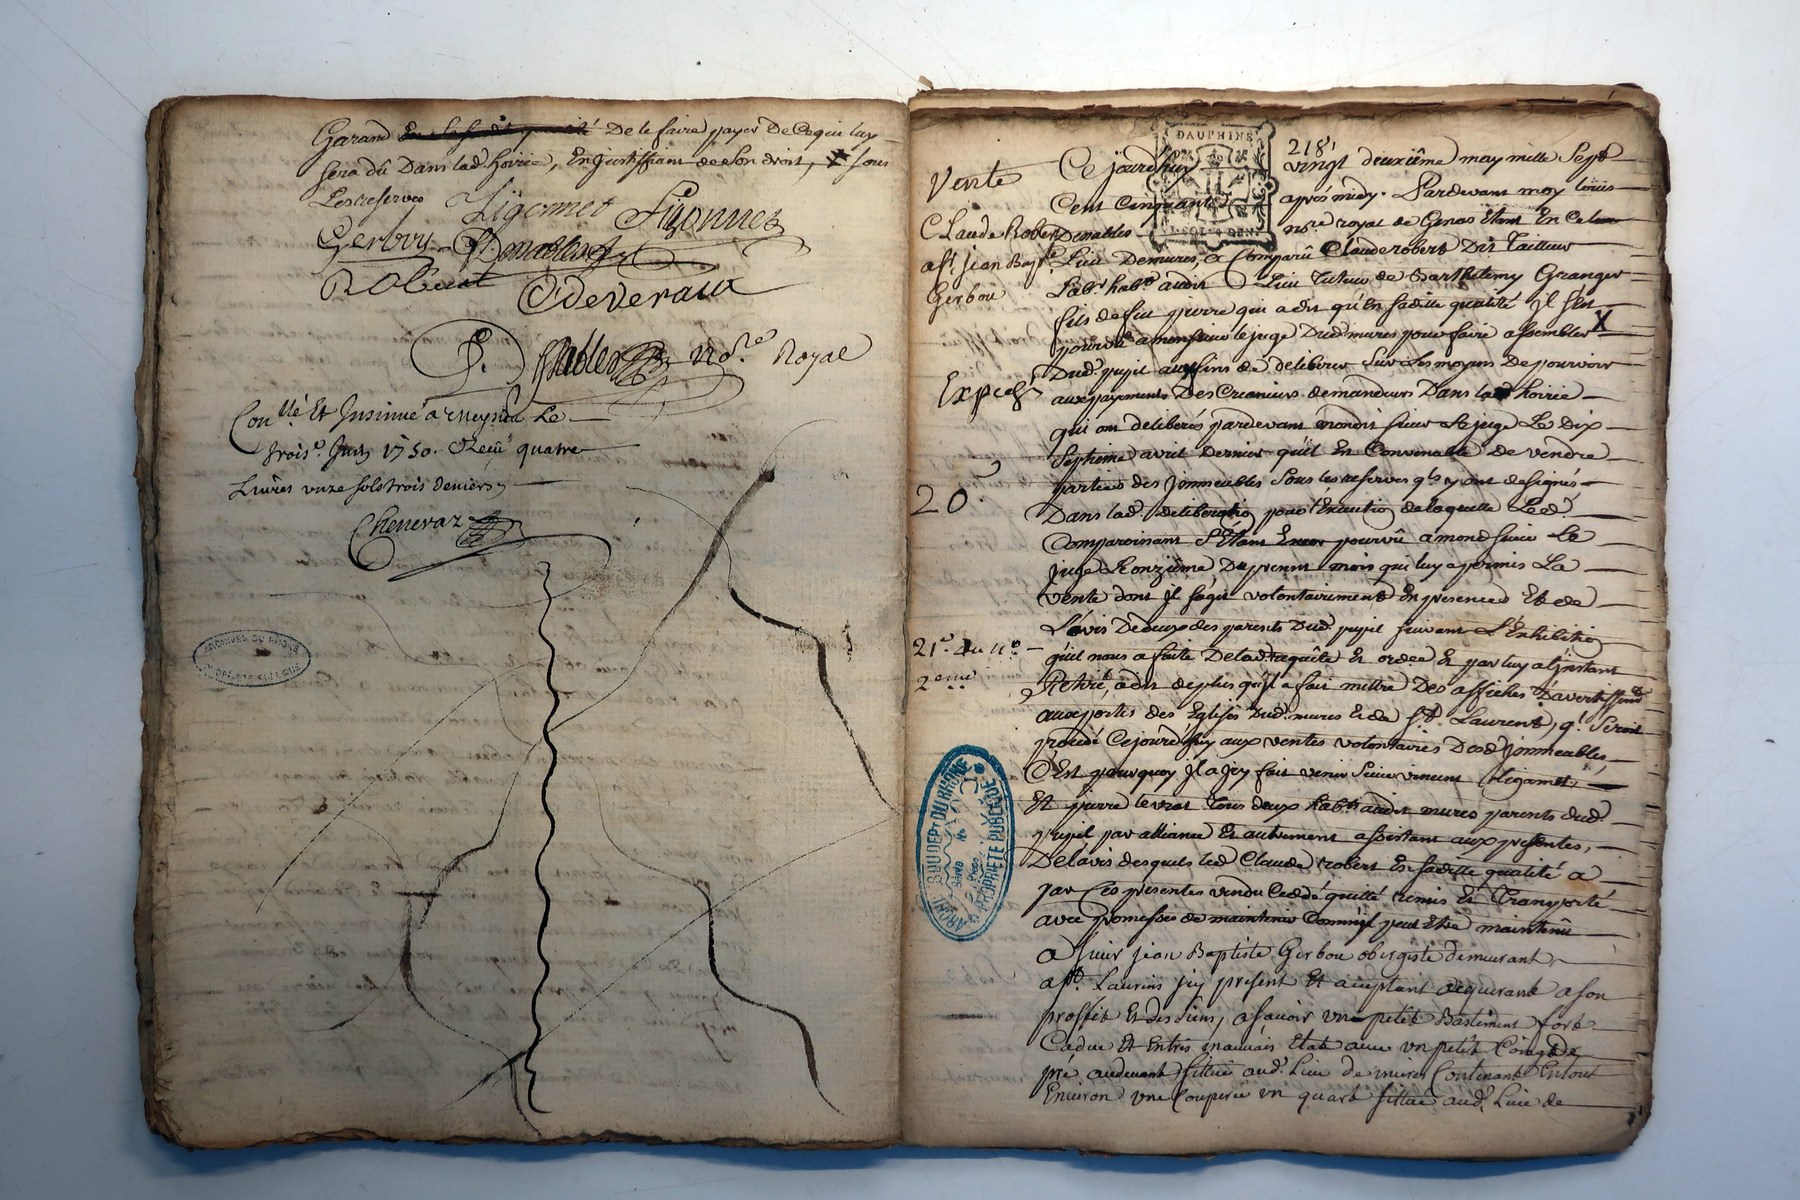 Garand en sa ditte qualité De le faire payer De Ce qui luy
Sera dû Dans lad. hoirie, En justiffiant de son droit, sous
Les reserves Ligonnet Ligonnet
Gerbou Demables
Robert C deveraux
Demables No.re Royal
Con.llé Et Insinué a Meyzieu Le
trois.e Juin 1750. Receu quatre
Livres onze sols trois deniers
Cheneraz
ARCHIVES DU RHÔNE
PROPRIÉTÉ PUBLIQUE
DAUPHINE
SOL DEN
218
Vente
Claude Robert
a S.t Jean Bap.te
Gerbou
Expedié
20
21.e du n.o
2.eme
Ce jourdhuy vingt deuxiême may mille Sept
Cent Cinquante après midy. Pardevant moy louis
Demables no.re royal de Genas Etant En Ce lieu
Lieu Demures, a Comparû Claude robert Dit Tailleur
Lab.r hab.t audit Lieu tuteur de Barthelemy Granger
fils de feu pierre qui a dit qu'En sa ditte qualité Il s'est
pourvû a monsieur le juge Dud. mures pour faire assembler X
Dud. pupil aux fins de deliberer Sur Les moyens De pourvoir
aux payements Des Creanciers demandeurs Dans lad. hoirie
qui ont deliberés pardevant mondit sieur Le juge Le Dix
Septieme avril Dernier qu'il Est Convenable de vendre
parties des Immeubles Sous les reserves q.ls y ont designés
Dans lad. deliberation pour l'Execution de laquelle Led.
Comparoissant S'Etant pourvû a mond. sieur Le
juge Le onziême Du present mois qui luy a permis La
vente dont Il s'agit volontairement En presence Et de
L'avis De deux des parents Dud. pupil suivant L'Exhibition
qu'il nous a faite De lad. requête Et ordce Et par luy a l'jnstant
Retiré, a dit de plus qu'il a fait mettre Des affiches D'avertissem.t
aux portes des Eglises Dud. mures Et de S.t Laurent, q.l Seroit
procedé Ce jourdhuy aux ventes volontaires Desd. Immeubles,
C'Est pourquoy Il a Icy fait venir Sieur vincent Ligonnet,
Et pierre levrat Tous deux hab.ts audit mures parents dud.
pupil par alliance Et autrement assistant aux presentes,
De l'avis desquels led. Claude robert En sa ditte qualité a
par Ces presentes vendu Ceddé quitté remis Et Transporté
avec promesses de maintenir Comme Il peut Etre maintenû
a Sieur jean Baptiste Gerbou obergiste demeurant
a S.t Laurens Icy present Et aceptant acquerant a Son
proffit Et des Siens, a Scavoir vn petit Bastiment fort
Caduc Et En tres mauvais Etat avec vn petit Coing de
pré audevant Sittué aud. Lieu de mures Contenant En tout
Environ vne Couperée vn quart Sittué aud. Lieu de
ARCH. DU DEPT DU RHÔNE
PROPRIETE PUBLIQUE